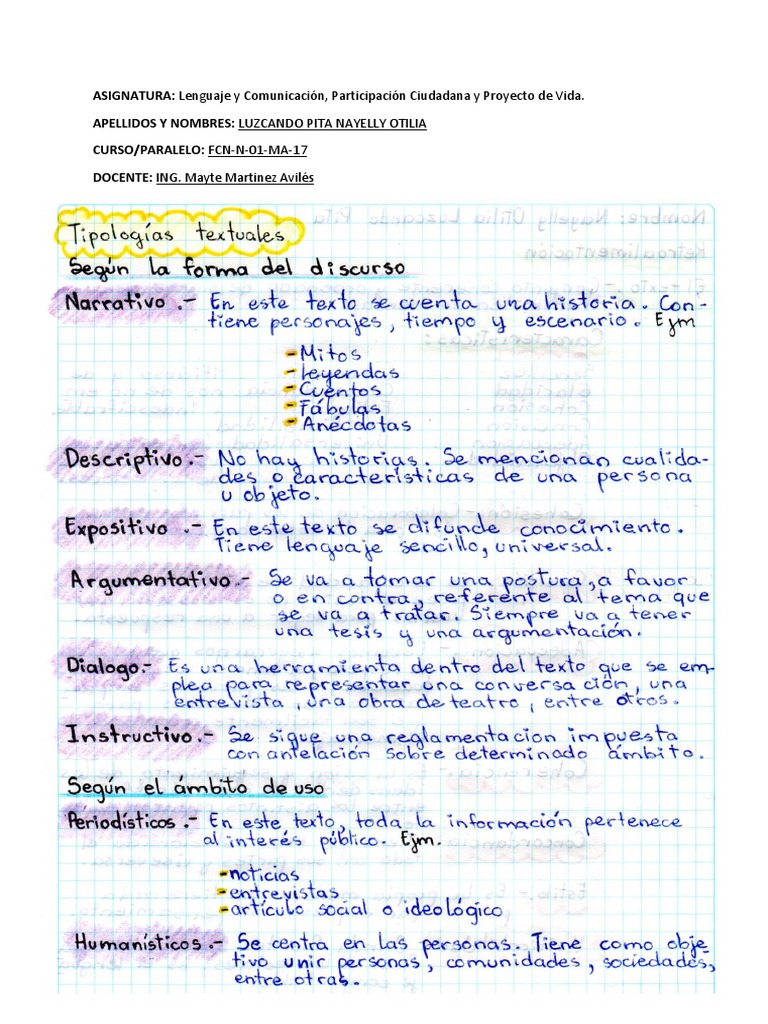 ASIGNATURA: Lenguaje y Comunicación, Participación Ciudadana y Proyecto de Vida.
APELLIDOS Y NOMBRES: LUZCANDO PITA NAYELLY OTILIA
CURSO/PARALELO: FCN-N-01-MA-17
DOCENTE: ING. Mayte Martinez Avilés
Tipologías textuales
Según la forma del discurso
Narrativo.- En este texto se cuenta una historia. Con-
tiene personajes, tiempo y escenario. Ejm
- Mitos
- Leyendas
- Cuentos
- Fábulas
- Anécdotas
Descriptivo.- No hay historias. Se mencionan cualida-
des o características de una persona
u objeto.
Expositivo.- En este texto se difunde conocimiento.
Tiene lenguaje sencillo, universal.
Argumentativo.- Se va a tomar una postura, a favor
o en contra, referente al tema que
se va a tratar. Siempre va a tener
una tesis y una argumentación.
Dialogo.- Es una herramienta dentro del texto que se em-
plea para representar una conversación, una
entrevista, una obra de teatro, entre otros.
Instructivo.- Se sigue una reglamentacion impuesta
con antelación sobre determinado ámbito.
Según el ámbito de uso
Periodísticos.- En este texto, toda la información pertenece
al interés público. Ejm.
- noticias
- entrevistas
- artículo social o ideológico
Humanísticos.- Se centra en las personas. Tiene como obje-
tivo unir personas, comunidades, sociedades,
entre otras.